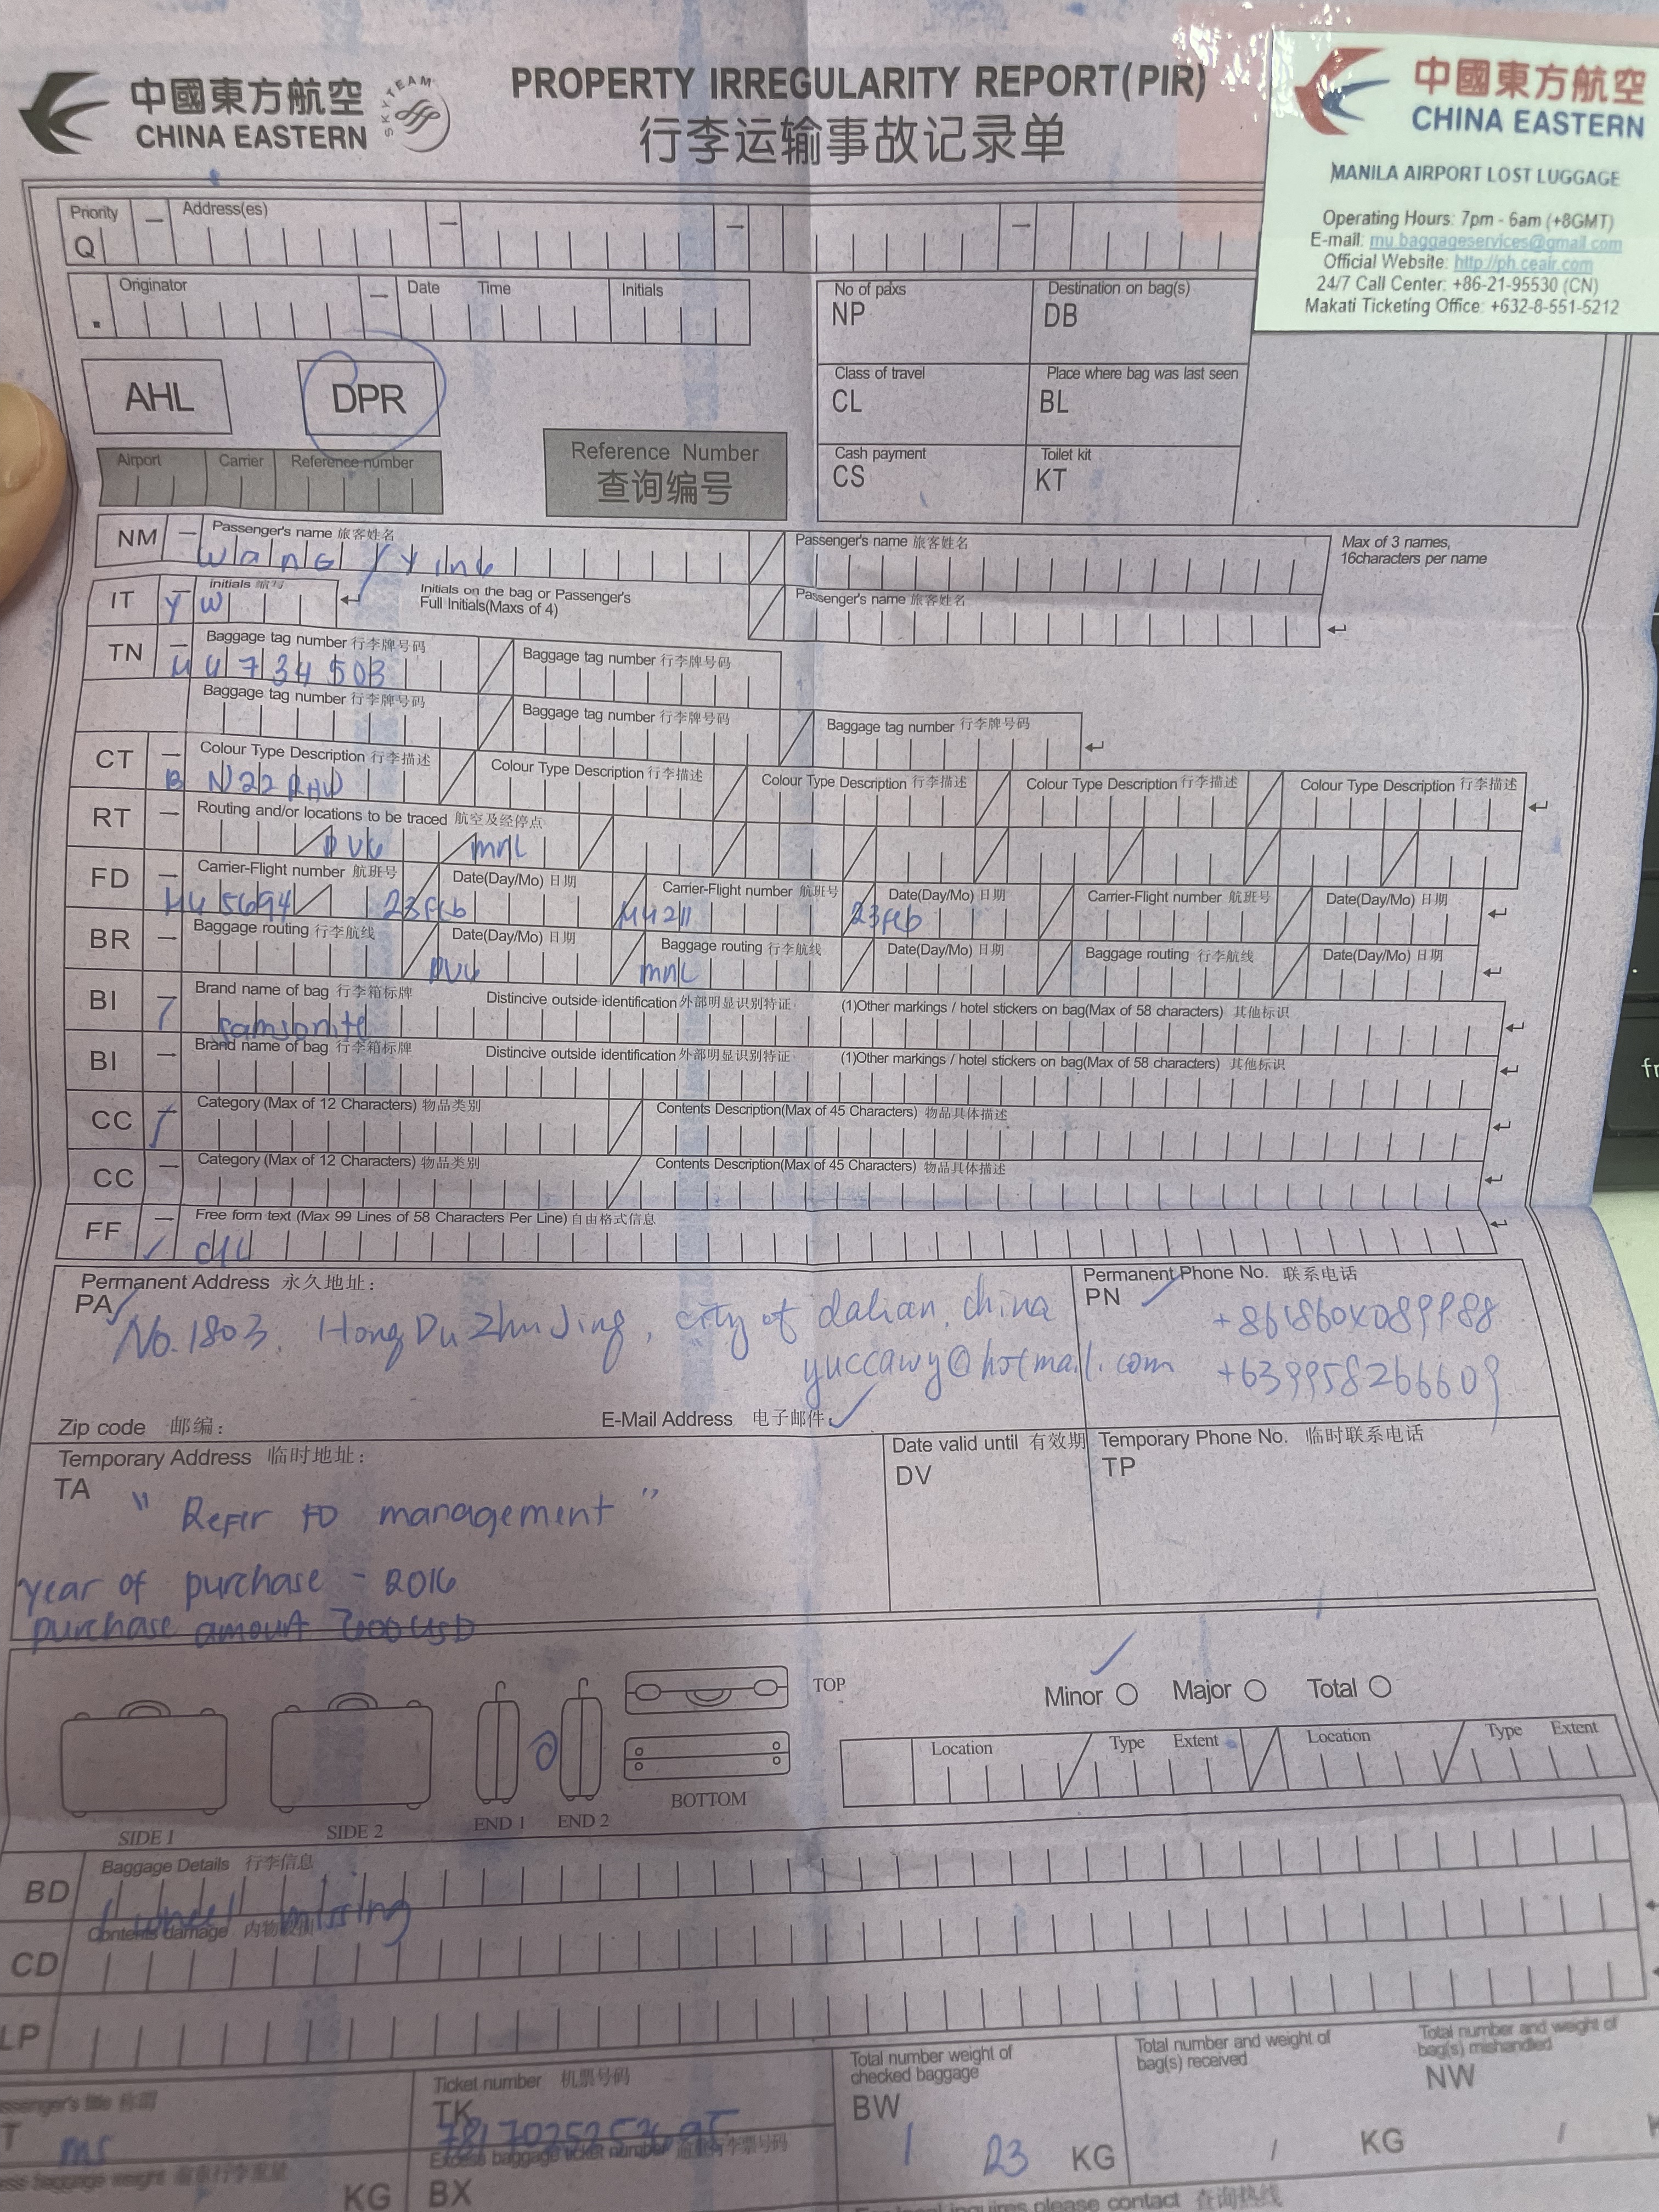 中國東方航空
CHINA EASTERN
SKYTEAM
PROPERTY IRREGULARITY REPORT(PIR)
行李运输事故记录单
中國東方航空
CHINA EASTERN
MANILA AIRPORT LOST LUGGAGE
Operating Hours: 7pm - 6am (+8GMT)
E-mail: mu.baggageservices@gmail.com
Official Website: http://ph.ceair.com
24/7 Call Center: +86-21-95530 (CN)
Makati Ticketing Office: +632-8-551-5212
Priority Address(es)
Q
Originator Date Time Initials
No of paxs Destination on bag(s)
NP DB
AHL DPR
Class of travel Place where bag was last seen
CL BL
Airport Carrier Reference number
Reference Number
查询编号
Cash payment Toilet kit
CS KT
NM Passenger's name 旅客姓名 Passenger's name 旅客姓名
Wang / Ying
Max of 3 names,
16characters per name
IT initials Initials on the bag or Passenger's Full Initials(Maxs of 4) Passenger's name 旅客姓名
YW
TN Baggage tag number 行李牌号码 Baggage tag number 行李牌号码
MU 734503
Baggage tag number 行李牌号码 Baggage tag number 行李牌号码 Baggage tag number 行李牌号码
CT Colour Type Description 行李描述 Colour Type Description 行李描述 Colour Type Description 行李描述 Colour Type Description 行李描述 Colour Type Description 行李描述
BN22 RHW
RT Routing and/or locations to be traced 航空及经停点
PVG mnl
FD Carrier-Flight number 航班号 Date(Day/Mo) 日期 Carrier-Flight number 航班号 Date(Day/Mo) 日期 Carrier-Flight number 航班号 Date(Day/Mo) 日期
MU 5694 23Feb MU211 23Feb
BR Baggage routing 行李航线 Date(Day/Mo) 日期 Baggage routing 行李航线 Date(Day/Mo) 日期 Baggage routing 行李航线 Date(Day/Mo) 日期
PVG mnl
BI Brand name of bag 行李箱标牌 Distincive outside identification 外部明显识别特证 (1)Other markings / hotel stickers on bag(Max of 58 characters) 其他标识
Samsonite
BI Brand name of bag 行李箱标牌 Distincive outside identification 外部明显识别特证 (1)Other markings / hotel stickers on bag(Max of 58 characters) 其他标识
CC Category (Max of 12 Characters) 物品类别 Contents Description(Max of 45 Characters) 物品具体描述
CC Category (Max of 12 Characters) 物品类别 Contents Description(Max of 45 Characters) 物品具体描述
FF Free form text (Max 99 Lines of 58 Characters Per Line) 自由格式信息
Permanent Address 永久地址: Permanent Phone No. 联系电话
PA No.1803, HongDuZhuJing, city of dalian, china PN +8618604089988
yuccawy@hotmail.com +639958266609
Zip code 邮编: E-Mail Address 电子邮件:
Temporary Address 临时地址: Date valid until 有效期 Temporary Phone No. 临时联系电话
TA DV TP
" Refer to management "
year of purchase - 2016
purchase amount USD
Minor Major Total
TOP
BOTTOM
SIDE 1 SIDE 2 END 1 END 2
Location Type Extent Location Type Extent
BD Baggage Details 行李信息
1 wheel missing
CD Contents damage
LP
Ticket number 机票号码
TK
ms
Excess baggage ticket number
BX
KG
Total number weight of checked baggage
BW
1 23 KG
Total number and weight of bag(s) received
/ KG
Total number and weight of bag(s) mishandled
NW
/
please contact 查询热线